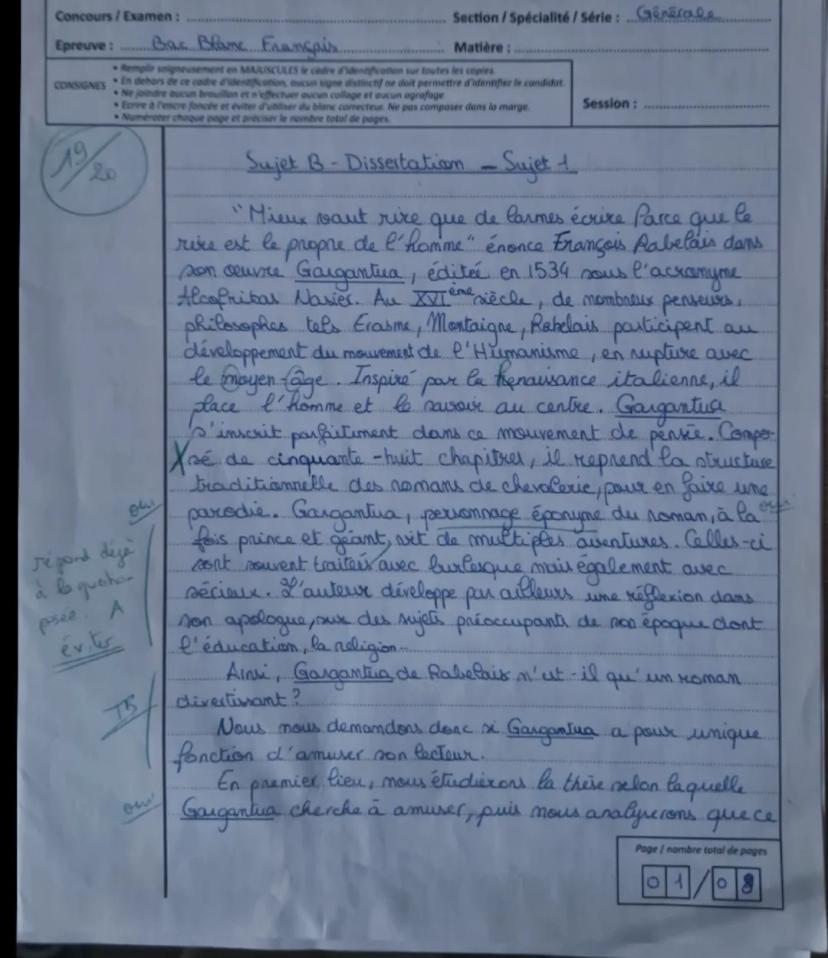 Concours / Examen : Section / Spécialité / Série : Générale
Epreuve : Bac Blanc Français Matière :
CONSIGNES
• Remplir soigneusement en MAJUSCULES le cadre d'identification sur toutes les copies.
• En dehors de ce cadre d'identification, aucun signe distinctif ne doit permettre d'identifier le candidat.
• Ne joindre aucun brouillon et n'effectuer aucun collage et aucun agrafage.
• Ecrire à l'encre foncée et éviter d'utiliser du blanc correcteur. Ne pas composer dans la marge.
• Numéroter chaque page et préciser le nombre total de pages.
Session :
19/20
Sujet B - Dissertation - Sujet 1
"Mieux vaut rire que de larmes écrire Parce que le
rire est le propre de l'homme" énonce François Rabelais dans
son œuvre Gargantua, édité en 1534 sous l'acronyme
Alcofribas Nasier. Au XVIème siècle, de nombreux penseurs,
philosophes tels Erasme, Montaigne, Rabelais participent au
développement du mouvement de l'Humanisme, en rupture avec
le moyen-âge. Inspiré par la Renaissance italienne, il
place l'homme et le savoir au centre. Gargantua
s'inscrit parfaitement dans ce mouvement de pensée. Compo-
X sé de cinquante-huit chapitres, il reprend la structure
traditionnelle des romans de chevalerie, pour en faire une
oui parodie. Gargantua, personnage éponyme du roman, à la oui
fois prince et géant, vit de multiples aventures. Celles-ci
répond déjà
à la question
posée. A
éviter
sont souvent traitées avec burlesque mais également avec
sérieux. L'auteur développe par ailleurs une réflexion dans
son apologue, sur des sujets préoccupants de son époque dont
l'éducation, la religion...
Ainsi, Gargantua de Rabelais n'est-il qu'un roman
TB divertissant ?
Nous nous demandons donc si Gargantua a pour unique
fonction d'amuser son lecteur.
En premier lieu, nous étudierons la thèse selon laquelle
oui Gargantua cherche à amuser, puis nous analyserons que ce
Page / nombre total de pages
01/08